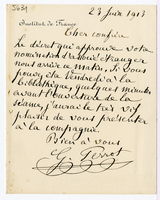 5651
23 Juin 1913
Institut de France
Cher confrère
Le décret qui approuve votre
nomination d'associé étranger
nous arrive ce matin. Si vous
pouvez être vendredi à la
bibliothèque, quelques minutes
avant l'ouverture de la
séance, j'aurai le très vif
plaisir de vous présenter
à la compagnie.
Bien à vous
G. Perrot